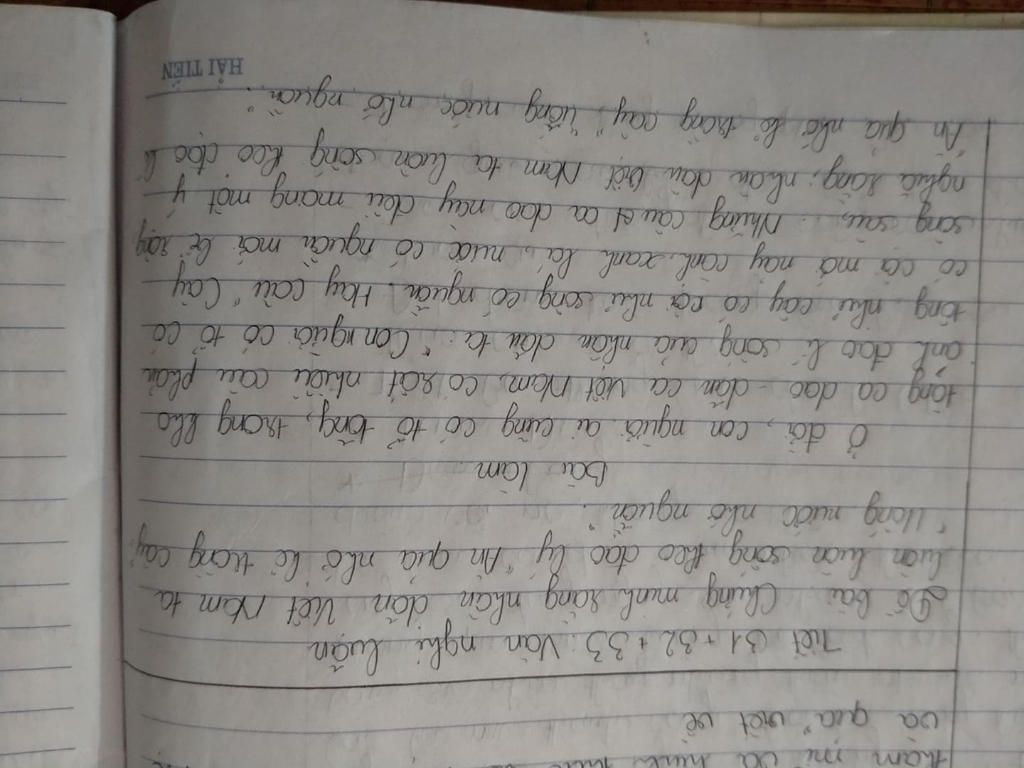 thám mĩ và hình thức
và quả viết về
Tiết 31 + 32 + 33: Văn nghị luận
Đề bài: Chứng minh rằng nhân dân Việt Nam ta
luôn luôn sống theo đạo lý "Ăn quả nhớ kẻ trồng cây"
"Uống nước nhớ nguồn".
Bài làm
Ở đời, con người ai cũng có tổ tông, trong kho
tàng ca dao - dân ca Việt Nam, có rất nhiều câu phản
ánh đạo lí sống của nhân dân ta: "Con người có tổ có
tông như cây có cội như sông có nguồn. Hay câu "Cây
có cội mới nảy cành xanh lá, nước có nguồn mới bể rộng
sông sâu". Những câu ca dao này đều mang một ý
nghĩa rằng; nhân dân Việt Nam ta luôn sống theo đạo lí
Ăn quả nhớ kẻ trồng cây" "Uống nước nhớ nguồn".
HẢI TIẾN